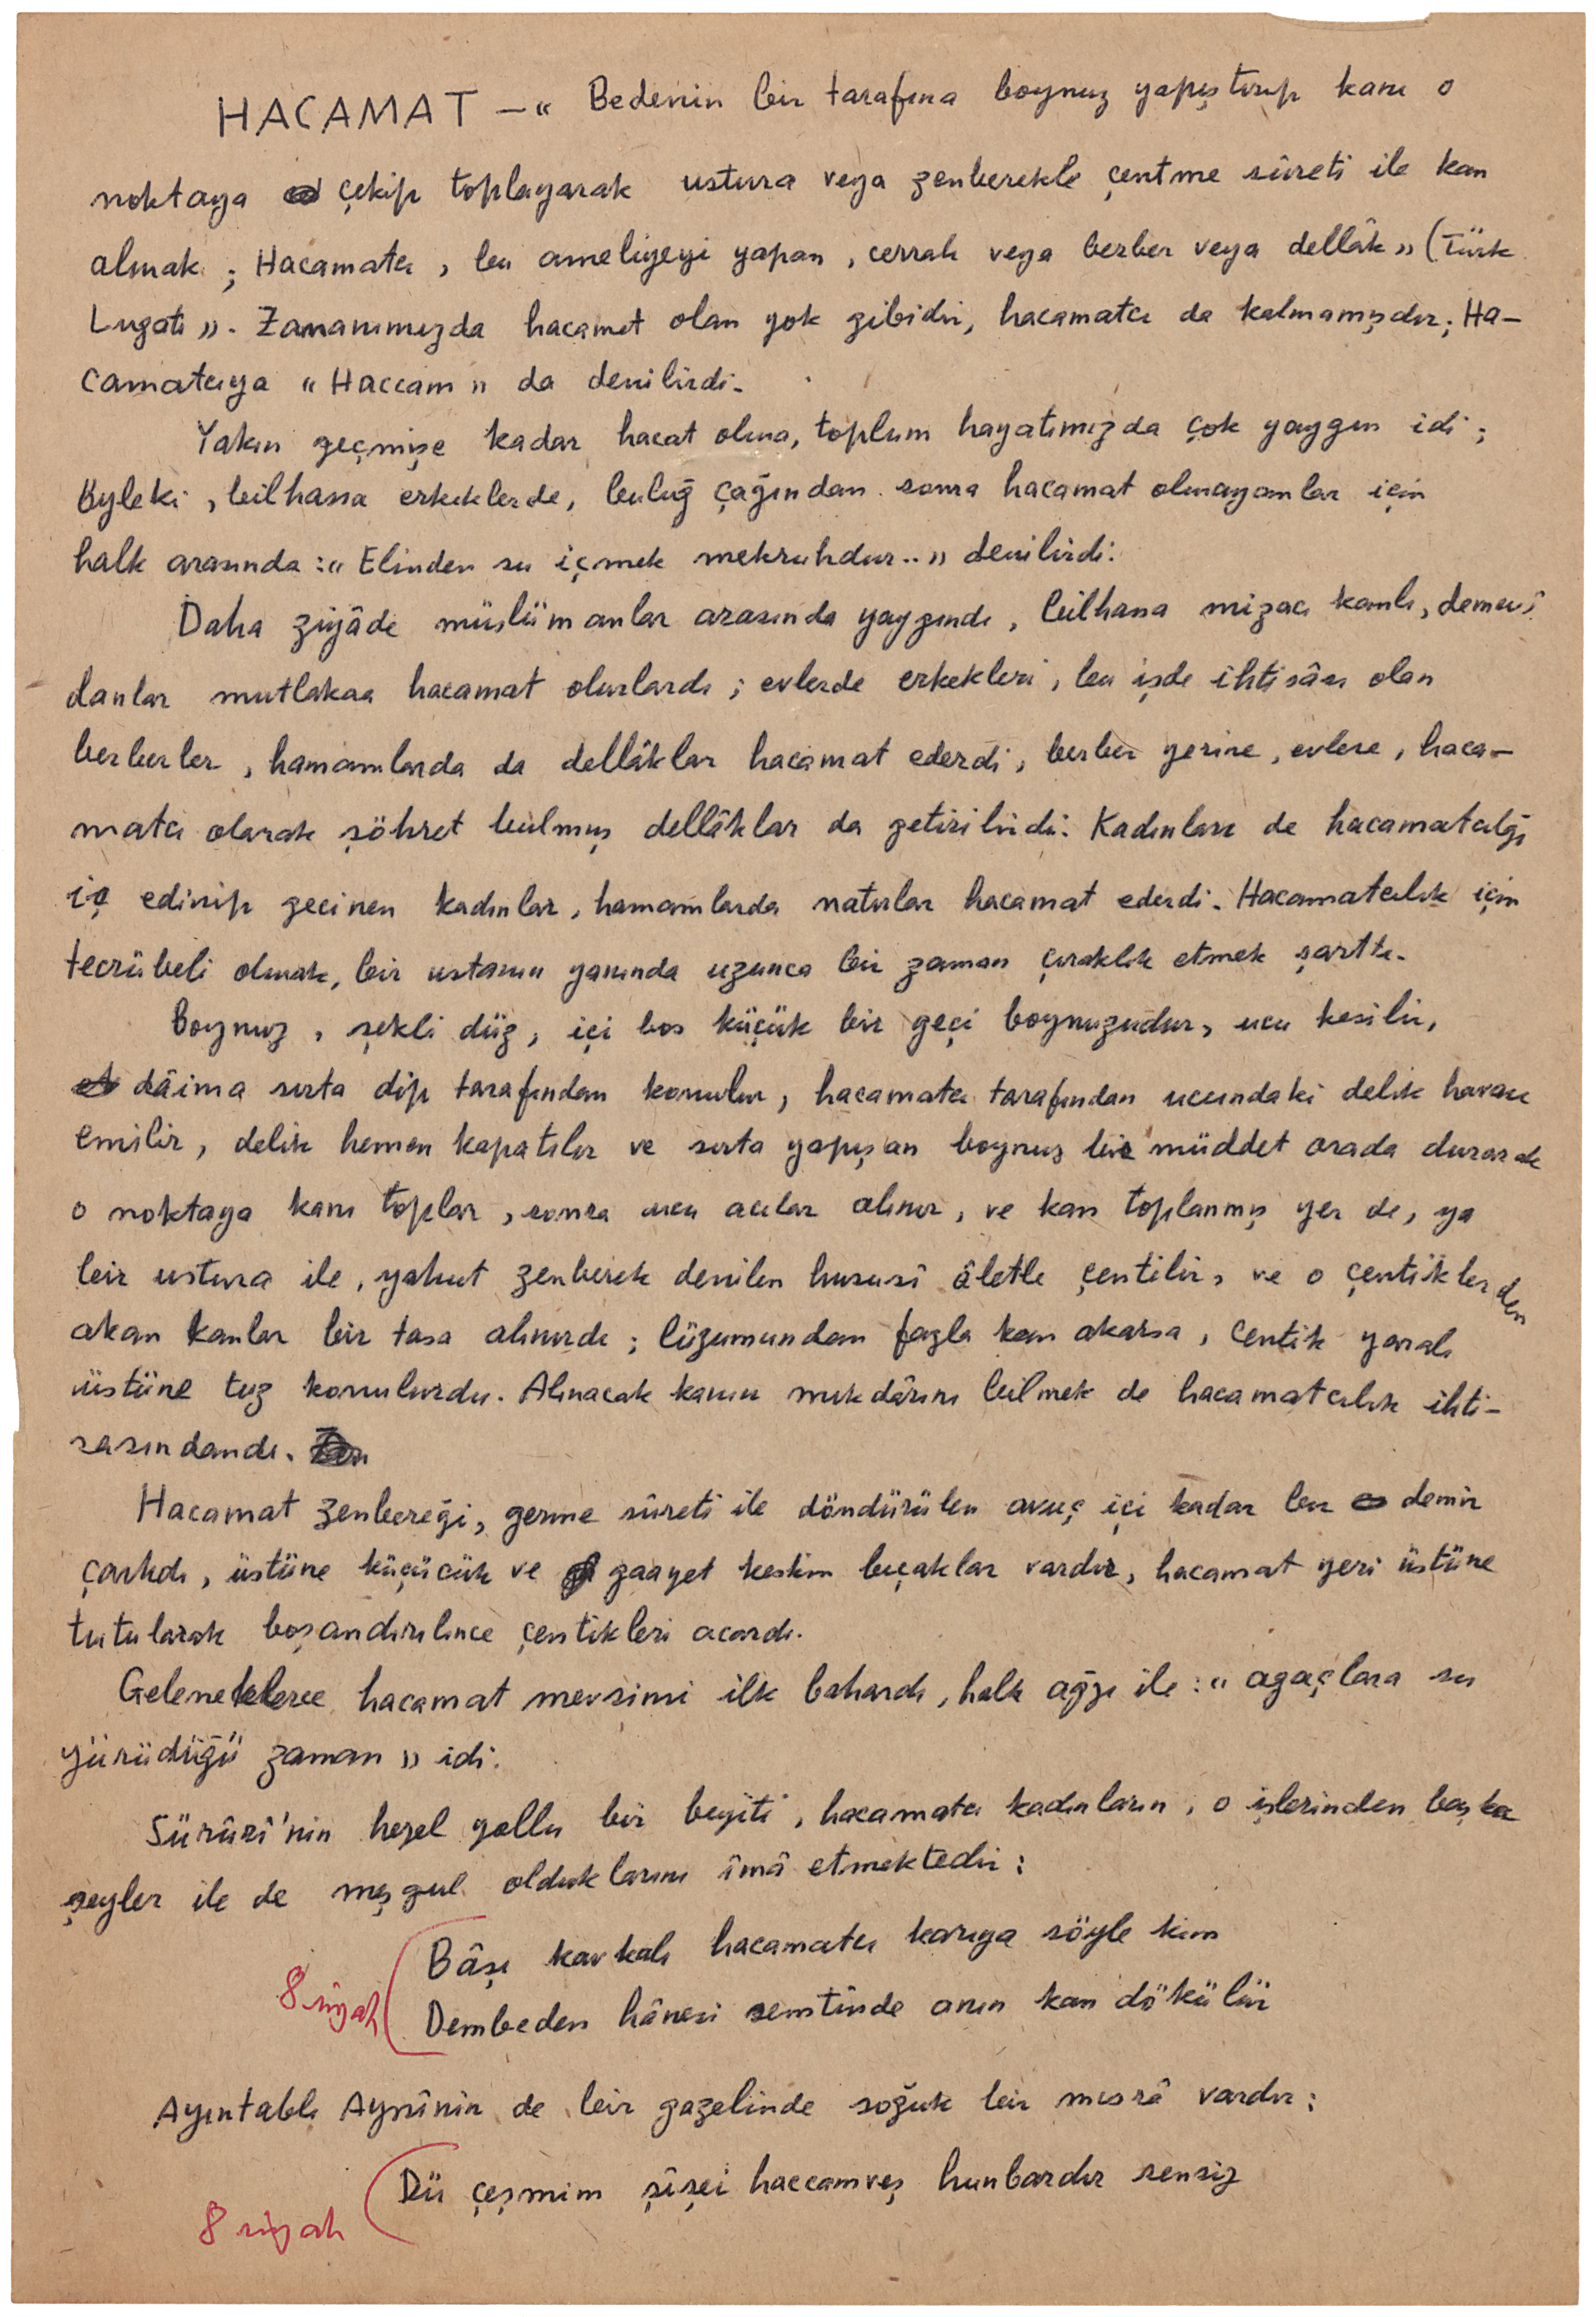 HACAMAT — « Bedenin bir tarafına boynuz yapıştırıp kanı o
noktaya çekip toplayarak ustura veya zenberekle çentme sûreti ile kan
almak ; Hacamatcı , bu ameliyeyi yapan , cerrah veya berber veya dellâk » (Türk
Lugatı ». Zamanımızda hacamat olan yok gibidir, hacamatcı da kalmamışdır; Ha-
camatcıya « Haccam » da denilirdi.
Yakın geçmişe kadar hacat olma, toplum hayatımızda çok yaygın idi ;
öyleki , bilhassa erkeklerde, buluğ çağından sonra hacamat olmayanlar için
halk arasında : « Elinden su içmek mekruhdur.. » denilirdi.
Daha ziyâde müslümanlar arasında yaygındı , bilhassa mizacı kanlı, demevî
danlar mutlakaa hacamat olurlardı ; evlerde erkekleri , bu işde ihtisâsı olan
berberler , hamamlarda da dellâklar hacamat ederdi ; berber yerine , evlere , haca-
matcı olarak şöhret bulmuş dellâklar da getirilirdi. Kadınları de hacamatcılığı
iş edinip geçinen kadınlar , hamamlarda natırlar hacamat ederdi. Hacamatcılık için
tecrübeli olmak, bir ustanın yanında uzunca bir zaman çıraklık etmek şarttı.
Boynuz , şekli düz, içi boş küçük bir geçi boynuzudur, ucu kesilir,
dâima sırta dip tarafından konulur, hacamatcı tarafından ucundaki delik havası
emilir, delik hemen kapatılır ve sırta yapışan boynuz bir müddet orada durarak
o noktaya kanı toplar , sonra ucu acılar alınır, ve kan toplanmış yer de, ya
bir ustura ile , yahut zenberek denilen hususî âletle çentilir, ve o çentiklerden
akan kanlar bir tasa alınırdı ; lüzumundan fazla kan akarsa , centik yaralı
üstüne tuz konulurdu. Alınacak kanın mikdârını bilmek de hacamatcılık ihti-
sasındandı.
Hacamat zenbereği, germe sûreti ile döndürülen avuç içi kadar bir demir
çarkdı , üstüne küçücük ve gaayet keskin bıçaklar vardır, hacamat yeri üstüne
tutularak boşandırılınce çentikleri acardı.
Geleneklerce hacamat mevsimi ilk bahardı , halk ağzı ile : « agaçlara su
yürüdüğü zaman » idi.
Sürûrî'nin hezel yollu bir beyiti , hacamatcı kadınların , o işlerinden başka
şeyler ile de meşgul olduklarını îmâ etmektedir :
Bâşı kavkalı hacamatcı karıya söyle kim
Dembeden hânesi semtinde anın kan dökülür
8 siyah
Ayıntablı Aynînin de bir gazelinde soğuk bir mısrâ vardır :
Dü çeşmim şîşei haccamveş hunbardır sensiz
8 siyah